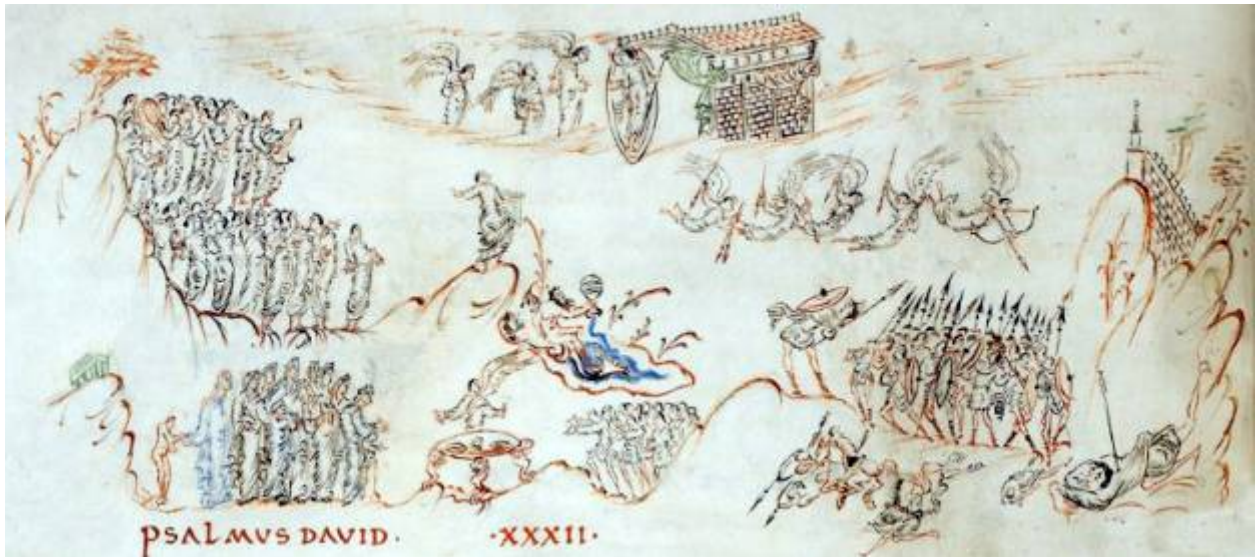 PSALMUS DAVID. ·XXXII·